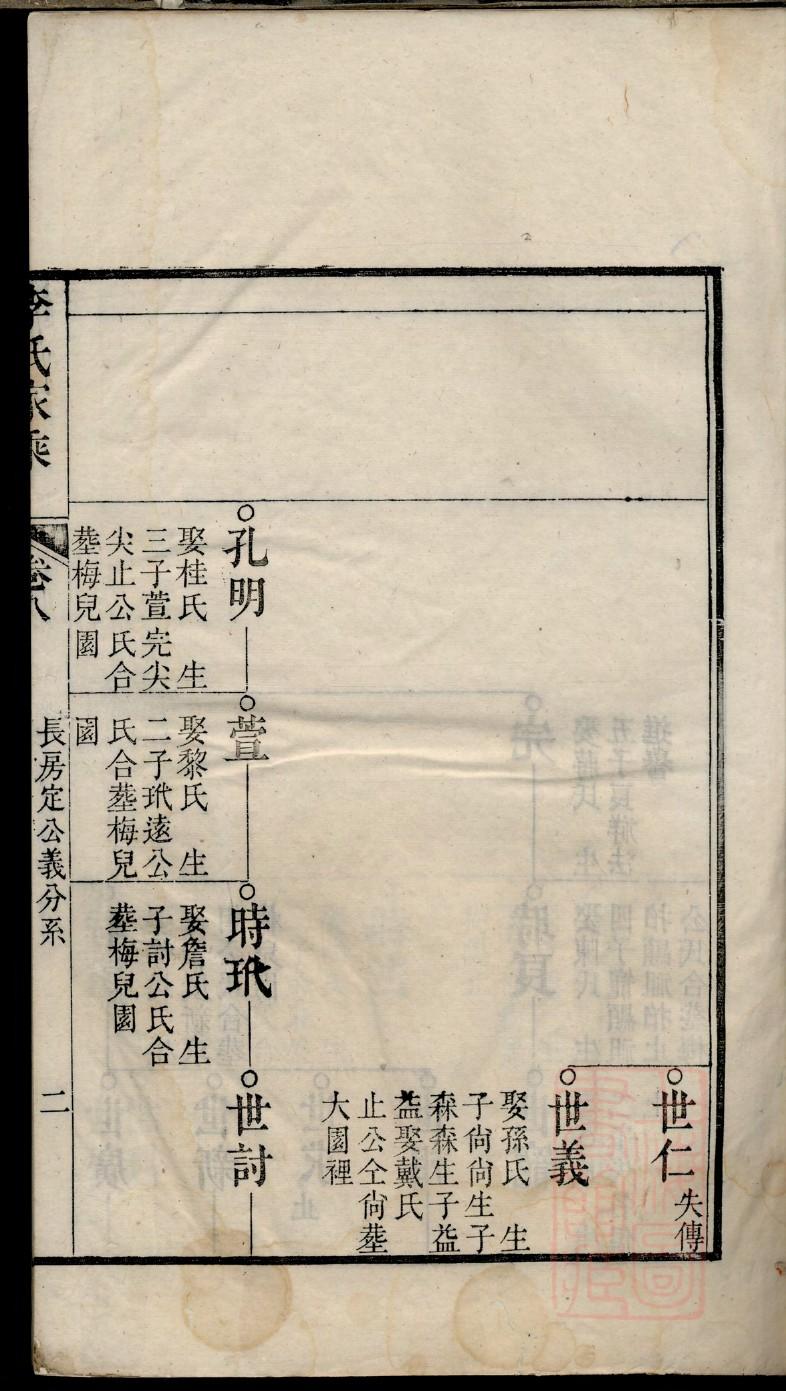 世仁
失傳
世義
娶孫氏 生
子尙尙生子
森森生子益
益娶戴氏
止公仝尙塟
大園裡
孔明
娶桂氏 生
三子萱完尖
尖止公氏合
塟梅兒園
萱
娶黎氏 生
二子玳遠公
氏合塟梅兒
園
時玳
娶詹氏 生
子討公氏合
塟梅兒園
世討
李氏家乘
卷八
長房定公義分系
二